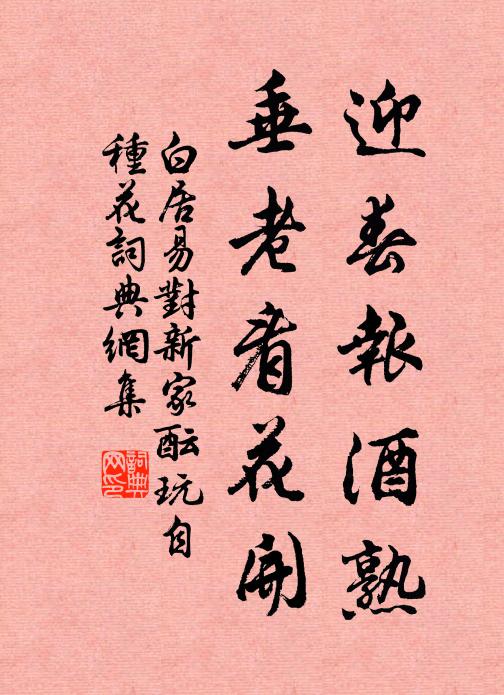 迎春報酒熟
垂老看花開
白居易對新家酝玩自
種花詞典網集
詞典
网印